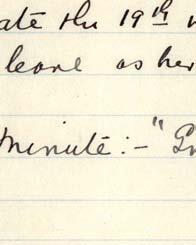 ate the 19th
leave as her
minute:- "